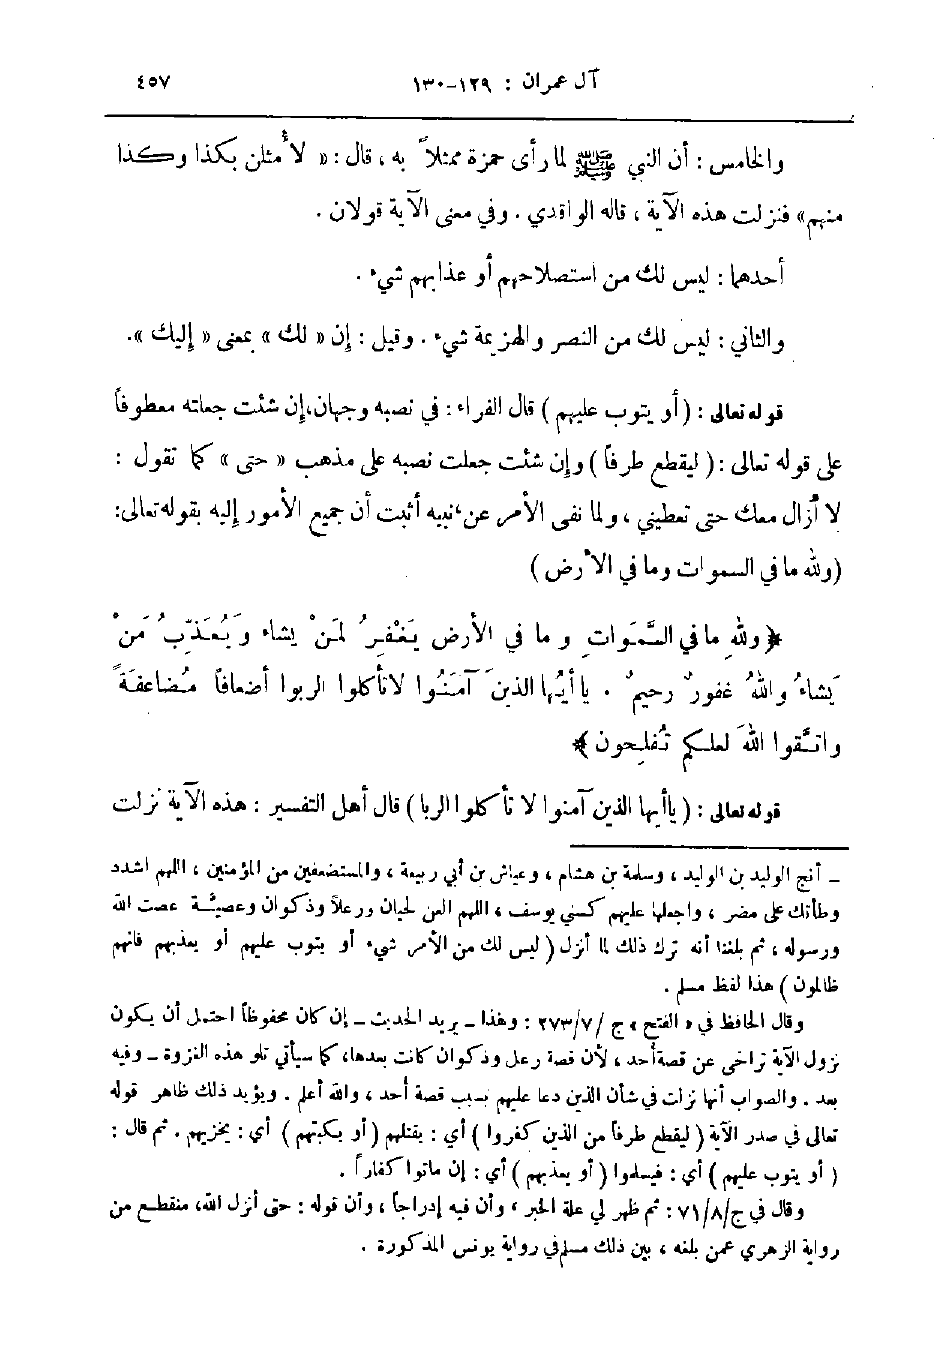 آل عمران : ١٢٩-١٣٠ ٤٥٧
والخامس : أن النبي ﷺ لما رأى حمزة ممثلاً به ، قال : « لأمثلن بكذا وكذا
منهم » فنزلت هذه الآية ، قاله الواقدي . وفي معنى الآية قولان .
أحدهما : ليس لك من استصلاحهم أو عذابهم شيء .
والثاني : ليس لك من النصر والهزيمة شيء . وقيل : إن « لك » بمعنى « إليك ».
قوله تعالى : ( أو يتوب عليهم ) قال الفراء : في نصبه وجهان، إن شئت جعلته معطوفاً
على قوله تعالى : ( ليقطع طرفاً ) وإن شئت جعلت نصبه على مذهب « حتى » كما تقول :
لا أزال معك حتى تعطيني ، ولما نفى الأمر عن نبيه أثبت أن جميع الأمور إليه بقوله تعالى:
(ولله ما في السموات وما في الأرض )
﴿ وللهِ ما في السَّمَواتِ وما في الأرض يَغْفِرُ لمَنْ يشاء ويُعَذِّبُ مَنْ
يَشاءُ واللهُ غفورٌ رحيمٌ . يا أيُّها الذينَ آمَنُوا لا تأكلوا الربوا أضعافاً مُضاعفَةً
واتَّقوا اللهَ لعلكم تُفلِحون ﴾
قوله تعالى : ( ياأيها الذين آمنوا لا تأكلوا الربا ) قال أهل التفسير : هذه الآية نزلت
ـ أنج الوليد بن الوليد ، وسلمة بن هشام ، وعياش بن أبي ربيعة ، والمستضعفين من المؤمنين ، اللهم اشدد
وطأتك على مضر ، واجعلها عليهم كسني يوسف ، اللهم العن لحيان ورعلاً وذكوان وعصيَّة عصت الله
ورسوله ، ثم بلغنا أنه ترك ذلك لما أنزل ( ليس لك من الأمر شيء أو يتوب عليهم أو يعذبهم فانهم
ظالمون ) هذا لفظ مسلم .
وقال الحافظ في « الفتح » ج /٢٧٣/٧ : وهذا ـ يريد الحديث ـ إن كان محفوظاً احتمل أن يكون
نزول الآية تراخى عن قصة أحد ، لأن قصة رعل وذكوان كانت بعدها، كما سيأتي تلو هذه الغزوة ـ وفيه
بعد . والصواب أنها نزلت في شأن الذين دعا عليهم بسبب قصة أحد ، والله أعلم . ويؤيد ذلك ظاهر قوله
تعالى في صدر الآية ( ليقطع طرفاً من الذين كفروا ) أي : يقتلهم ( أو يكبتهم ) أي : يخزيهم . ثم قال :
( أو يتوب عليهم ) أي : فيسلموا ( أو يعذبهم ) أي : إن ماتوا كفاراً .
وقال في ج/٧١/٨ : ثم ظهر لي علة الخبر ، وأن فيه إدراجاً ، وأن قوله : حتى أنزل الله، منقطع من
رواية الزهري عمن بلغه ، بين ذلك مسلم في رواية يونس المذكورة .